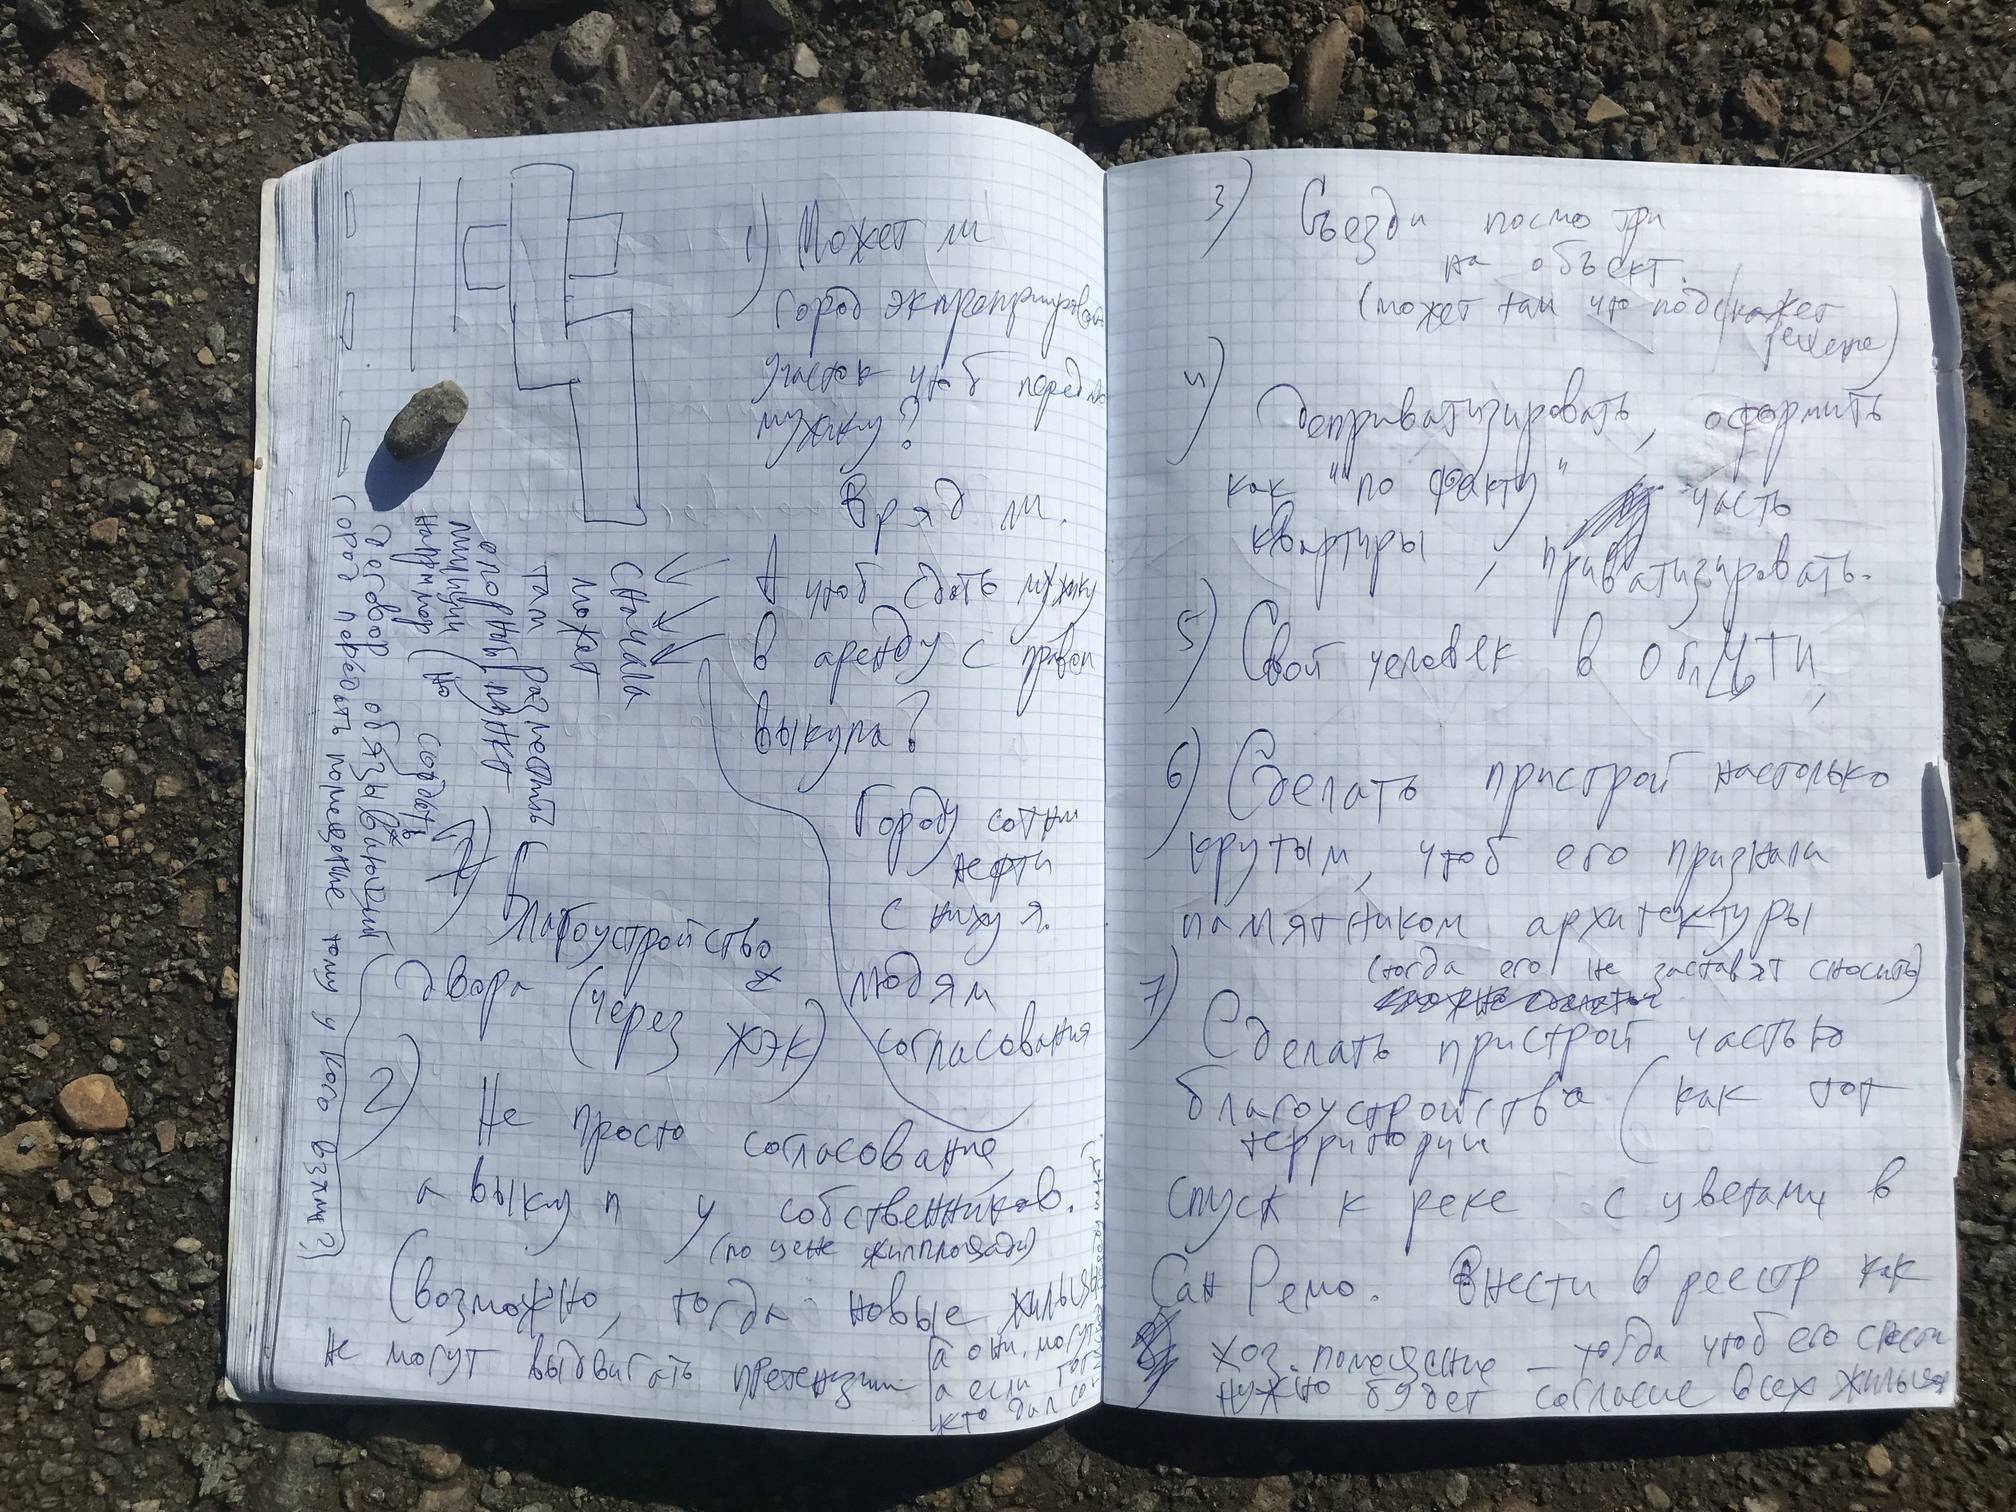 1) Может ли
город экпроприировать
участок чтоб передать
мужику?
Вряд ли.
А чтоб сдать мужику
в аренду с правом
выкупа?
Городу сотни
нефти
с нихуя.
людям
согласования
сначала
может
там разместить
опорный пункт
милиции
например (но создать
договор обязывающий
город передать помещение тому у кого взяли?)
Благоустройство
двора (через ЖЭК)
2) Не просто согласование,
а выкуп у собственников.
(по цене жилплощади)
(возможно, тогда новые жильцы
не могут выдвигать претензии
а они могут
а если
кто дал
3) Съезди посмотри
на объект.
(может там что подскажет
решение)
4) Доприватизировать, оформить
как "по факту" часть
квартиры, приватизировать.
5) Свой человек в ОблЦТИ,
6) Сделать пристрой настолько
крутым, чтоб его признали
памятником архитектуры
(тогда его не заставят сносить)
7) Сделать пристрой частью
благоустройства (как тот
территории
спуск к реке с цветами в
Сан Ремо. Внести в реестр как
хоз. помещение – тогда чтоб его снести
нужно будет согласие всех жильцов